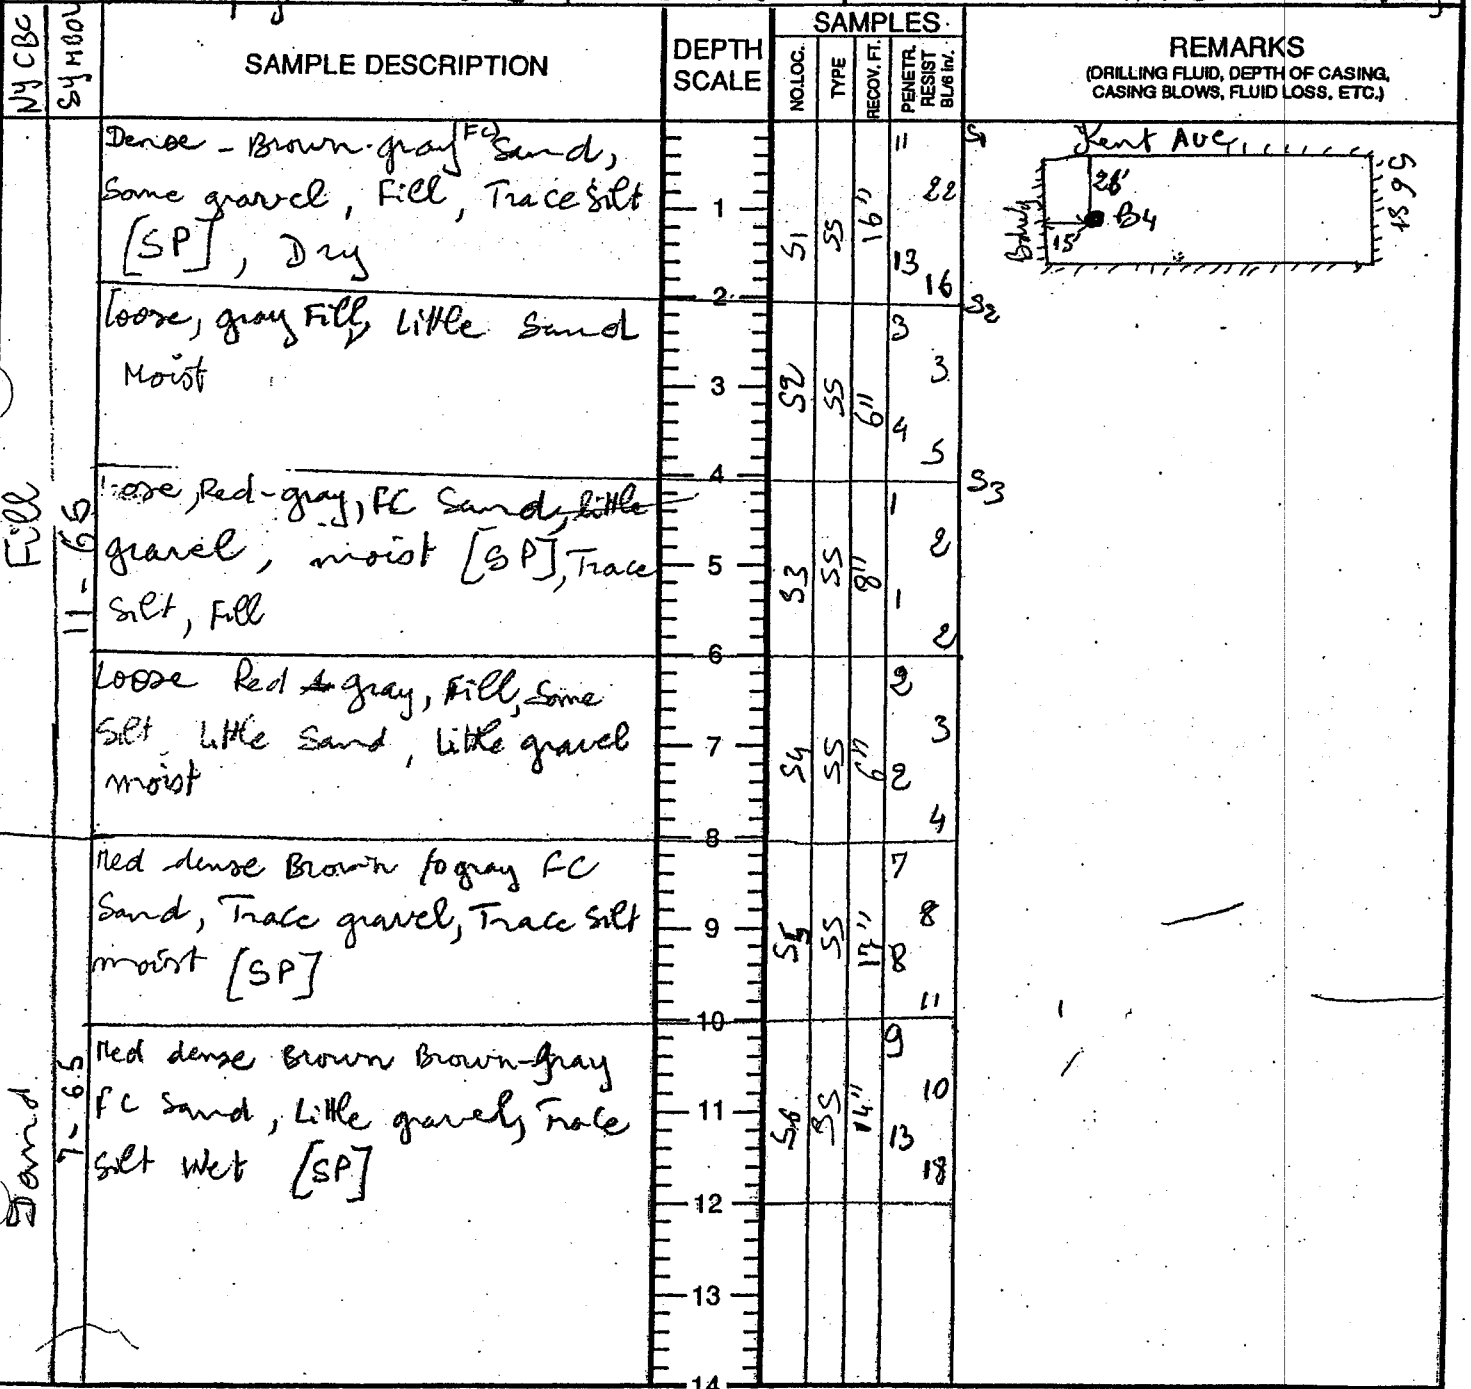 NY CBC
SYMBOL
SAMPLE DESCRIPTION
DEPTH
SCALE
SAMPLES
NO.LOC.
TYPE
RECOV. FT.
PENETR.
RESIST
BL/6 in/.
REMARKS
(DRILLING FLUID, DEPTH OF CASING,
CASING BLOWS, FLUID LOSS, ETC.)
Dense - Brown-gray (FC) Sand,
Some gravel, Fill, Trace Silt
[SP], Dry
1
S1 SS 16"
11
22
13
16
S1
Kent Ave
26'
B4
15'
S6 St
2
Loose, gray Fill, Little Sand
Moist
3
S2 SS 6"
3
3
4
5
S2
4
Loose, Red-gray, FC Sand, little
gravel, moist [SP], Trace
Silt, Fill
5
S3 SS 8"
1
2
1
2
S3
Fill
11-65
6
Loose Red gray, Fill, Some
Silt, Little Sand, Little gravel
moist
7
S4 SS 6"
2
3
2
4
8
Med dense Brown to gray FC
Sand, Trace gravel, Trace Silt
moist [SP]
9
S5 SS 17"
7
8
8
11
10
Med dense Brown Brown-Gray
FC Sand, Little gravel, Trace
Silt Wet [SP]
11
S6 SS 14"
9
10
13
18
Sand
7-65
12
13
14